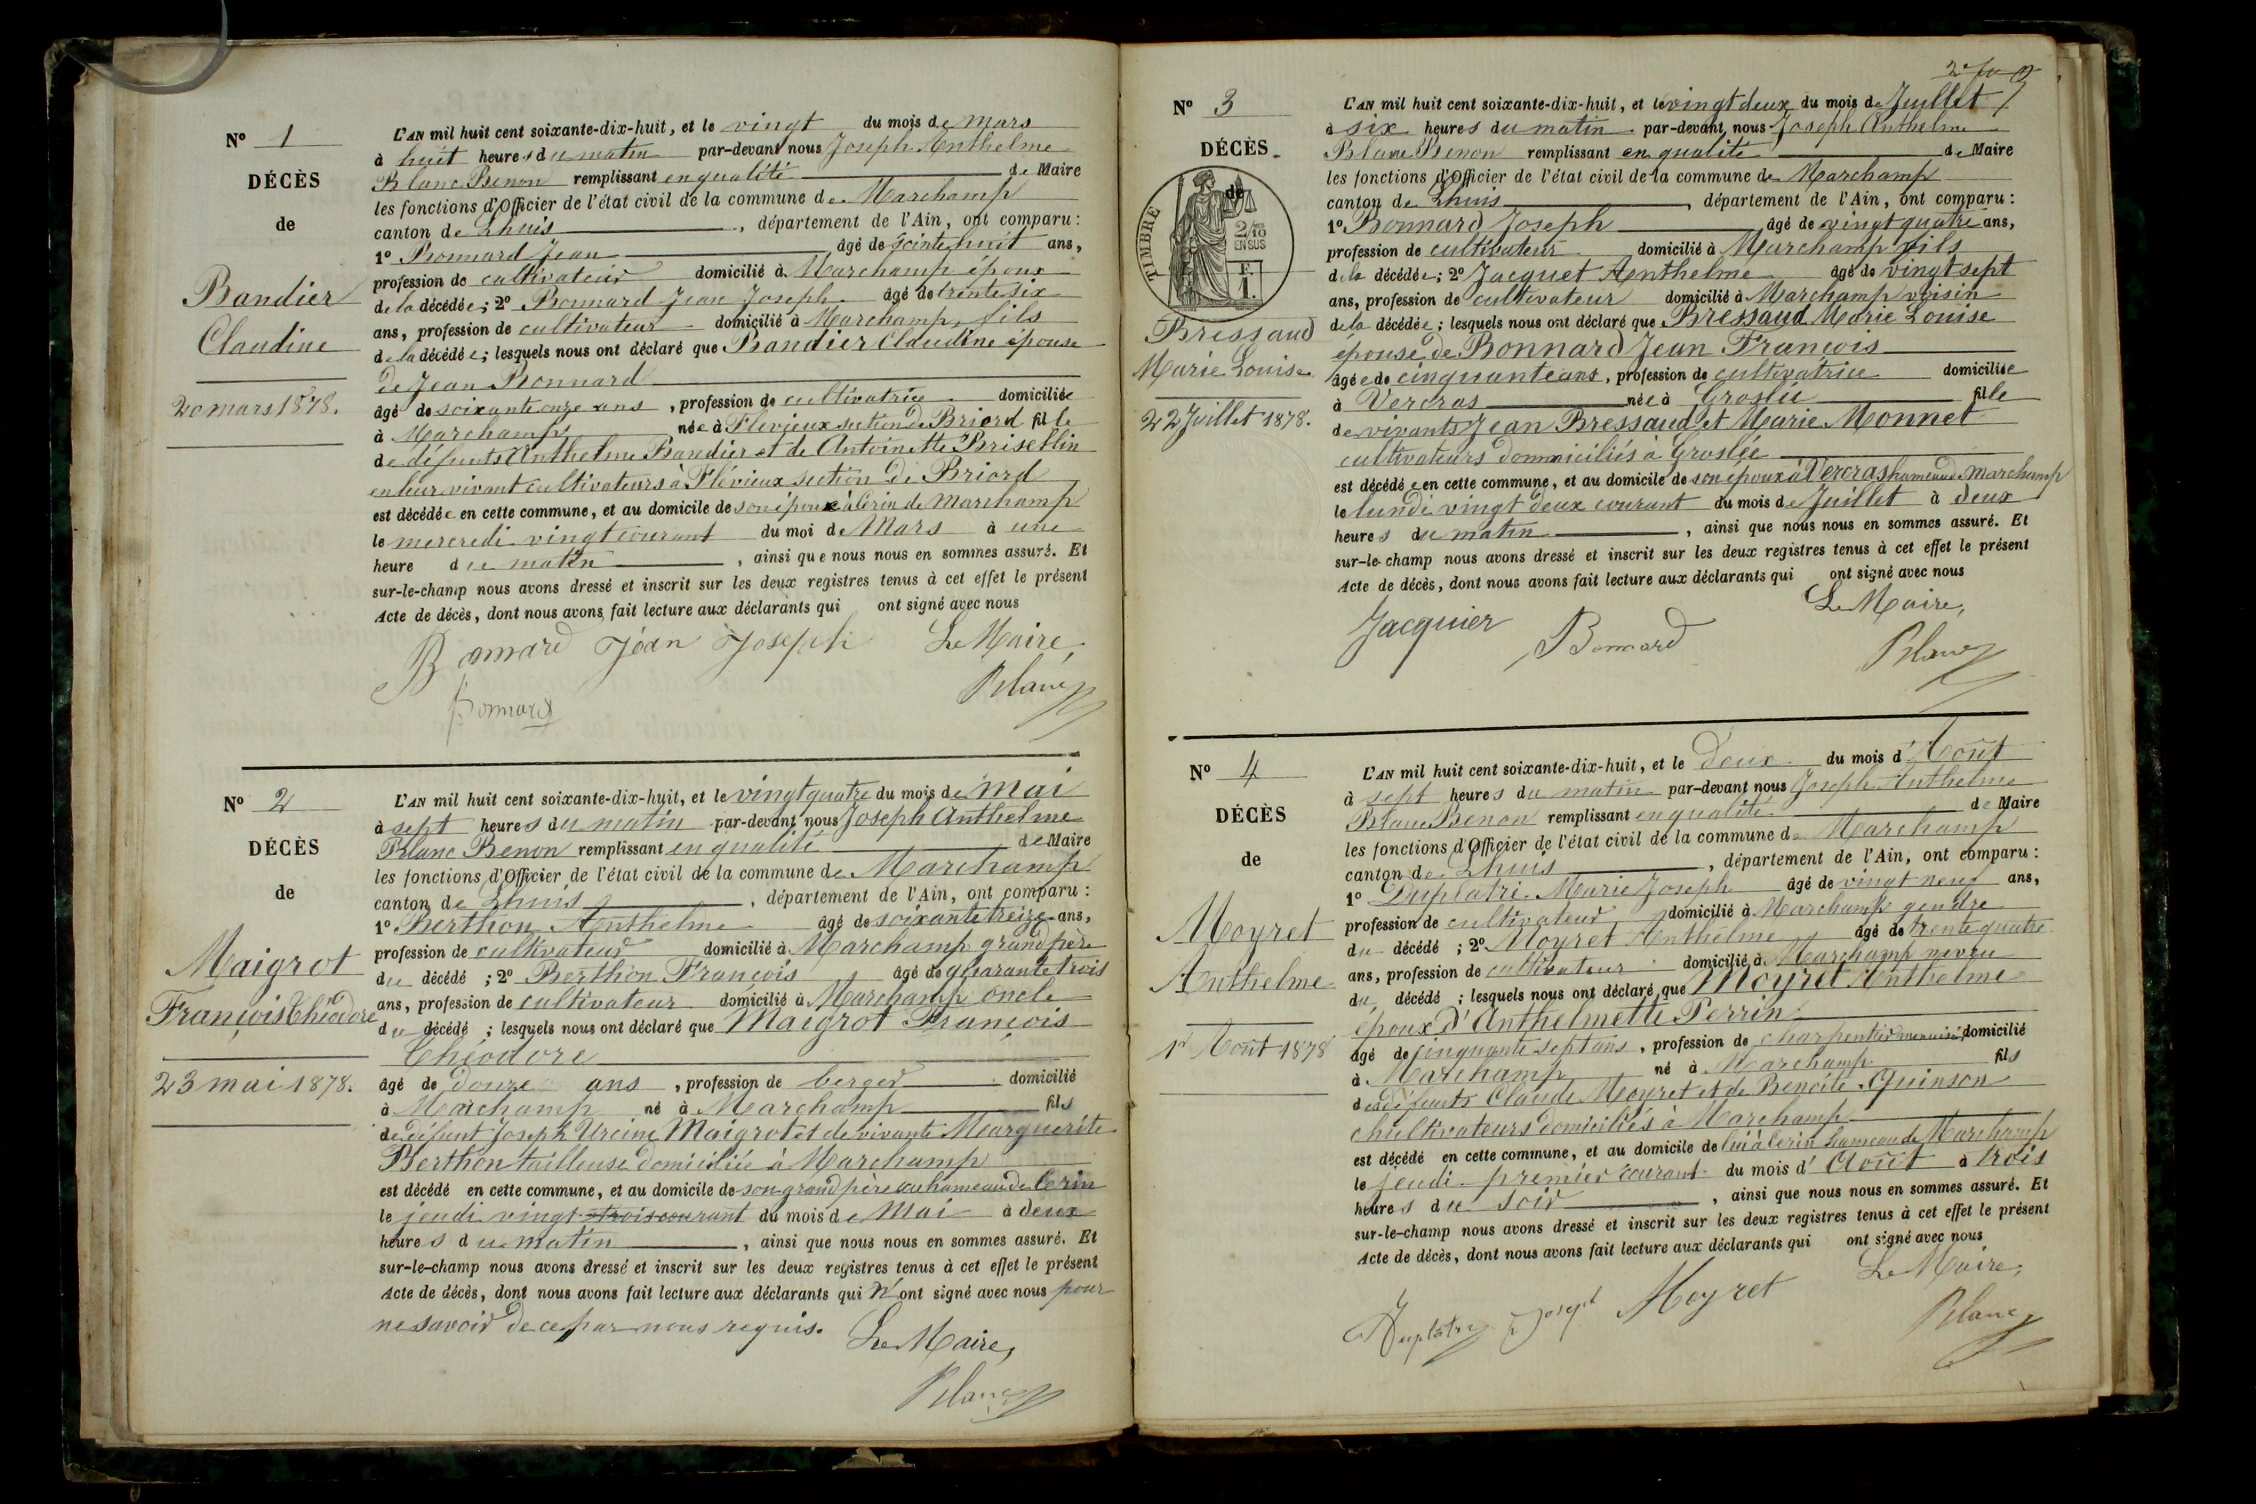 Nº 1
DÉCÈS
de
Bandier
Claudine
20 mars 1878.
L'AN mil huit cent soixante-dix-huit, et le vingt du mois de Mars
à huit heures du matin par-devant nous Joseph Anthelme
Blanc Benon remplissant en qualité de Maire
les fonctions d'Officier de l'état civil de la commune de Marchamp
canton de Lhuis, département de l'Ain, ont comparu :
1º Bonnard Jean âgé de ans,
profession de cultivateur domicilié à Marchamp époux
de la décédée ; 2º Bonnard Jean Joseph âgé de trente six
ans, profession de cultivateur domicilié à Marchamp, fils
de la décédée ; lesquels nous ont déclaré que Bandier Claudine épouse
de Jean Bonnard
âgé de soixante onze ans, profession de cultivatrice domiciliée
à Marchamp née à Flévieux section de Briord fille
de défunts Anthelme Bandier et de Antoinette Brisellin
en leur vivant cultivateurs à Flévieux section de Briord
est décédée en cette commune, et au domicile de son époux à Cerin de Marchamp
le mercredi vingt courant du moi de Mars à une
heure du matin, ainsi que nous nous en sommes assuré. Et
sur-le-champ nous avons dressé et inscrit sur les deux registres tenus à cet effet le présent
Acte de décès, dont nous avons fait lecture aux déclarants qui ont signé avec nous
Bonnard Jean Joseph Le Maire,
Bonnard Blanc
Nº 2
DÉCÈS
de
Maigrot
François Théodore
23 mai 1878.
L'AN mil huit cent soixante-dix-huit, et le vingt quatre du mois de Mai
à sept heures du matin par-devant nous Joseph Anthelme
Blanc Benon remplissant en qualité de Maire
les fonctions d'Officier de l'état civil de la commune de Marchamp
canton de Lhuis, département de l'Ain, ont comparu :
1º Berthon Anthelme âgé de soixante treize ans,
profession de cultivateur domicilié à Marchamp grand père
du décédé ; 2º Berthon François âgé de quarante trois
ans, profession de cultivateur domicilié à Marchamp oncle
du décédé ; lesquels nous ont déclaré que Maigrot François
Théodore
âgé de douze ans, profession de berger domicilié
à Marchamp né à Marchamp fils
de défunt Joseph Urcine Maigrot et de vivante Marguerite
Berthon tailleuse domiciliée à Marchamp
est décédé en cette commune, et au domicile de son grand père au hameau de Cerin
le jeudi vingt trois courant du mois de Mai à deux
heures du matin, ainsi que nous nous en sommes assuré. Et
sur-le-champ nous avons dressé et inscrit sur les deux registres tenus à cet effet le présent
Acte de décès, dont nous avons fait lecture aux déclarants qui n'ont signé avec nous pour
ne savoir de ce par nous requis. Le Maire,
Blanc
Nº 3
DÉCÈS
de
TIMBRE
2/10
EN SUS
F.
1.
Bressaud
Marie Louise
22 Juillet 1878.
L'AN mil huit cent soixante-dix-huit, et le vingt deux du mois de Juillet
à six heures du matin par-devant nous Joseph Anthelme
Blanc Benon remplissant en qualité de Maire
les fonctions d'Officier de l'état civil de la commune de Marchamp
canton de Lhuis, département de l'Ain, ont comparu :
1º Bonnard Joseph âgé de vingt quatre ans,
profession de cultivateur domicilié à Marchamp fils
de la décédée ; 2º Jacquet Anthelme âgé de vingt sept
ans, profession de cultivateur domicilié à Marchamp voisin
de la décédée ; lesquels nous ont déclaré que Bressaud Marie Louise
épouse de Bonnard Jean François
âgée de cinquante ans, profession de cultivatrice domiciliée
à Vercras née à Groslée fille
de vivants Jean Bressaud et Marie Monnet
cultivateurs dommiciliés à Groslée
est décédée en cette commune, et au domicile de son époux à Vercras hameau de Marchamp
le lundi vingt deux courant du mois de Juillet à deux
heures du matin, ainsi que nous nous en sommes assuré. Et
sur-le-champ nous avons dressé et inscrit sur les deux registres tenus à cet effet le présent
Acte de décès, dont nous avons fait lecture aux déclarants qui ont signé avec nous
Le Maire,
Jacquier Bonnard Blanc
Nº 4
DÉCÈS
de
Moyret
Anthelme
1er Août 1878
L'AN mil huit cent soixante-dix-huit, et le deux du mois d'Août
à sept heures du matin par-devant nous Joseph Anthelme
Blanc Benon remplissant en qualité de Maire
les fonctions d'Officier de l'état civil de la commune de Marchamp
canton de Lhuis, département de l'Ain, ont comparu :
1º Duplatre Marie Joseph âgé de vingt neuf ans,
profession de cultivateur domicilié à Marchamp gendre
du décédé ; 2º Moyret Anthelme âgé de trente quatre
ans, profession de cultivateur domicilié à Marchamp neveu
du décédé ; lesquels nous ont déclaré que Moyret Anthelme
époux d'Anthelmette Perrin
âgé de cinquante sept ans, profession de charpentier menuisier domicilié
à Marchamp né à Marchamp fils
des défunts Claude Moyret et de Benoîte Quinson
cultivateurs domiciliés à Marchamp
est décédé en cette commune, et au domicile de lui à Cerin hameau de Marchamp
le jeudi premier courant du mois d'Août à trois
heures du soir, ainsi que nous nous en sommes assuré. Et
sur-le-champ nous avons dressé et inscrit sur les deux registres tenus à cet effet le présent
Acte de décès, dont nous avons fait lecture aux déclarants qui ont signé avec nous
Le Maire,
Duplatre Joseph Moyret Blanc